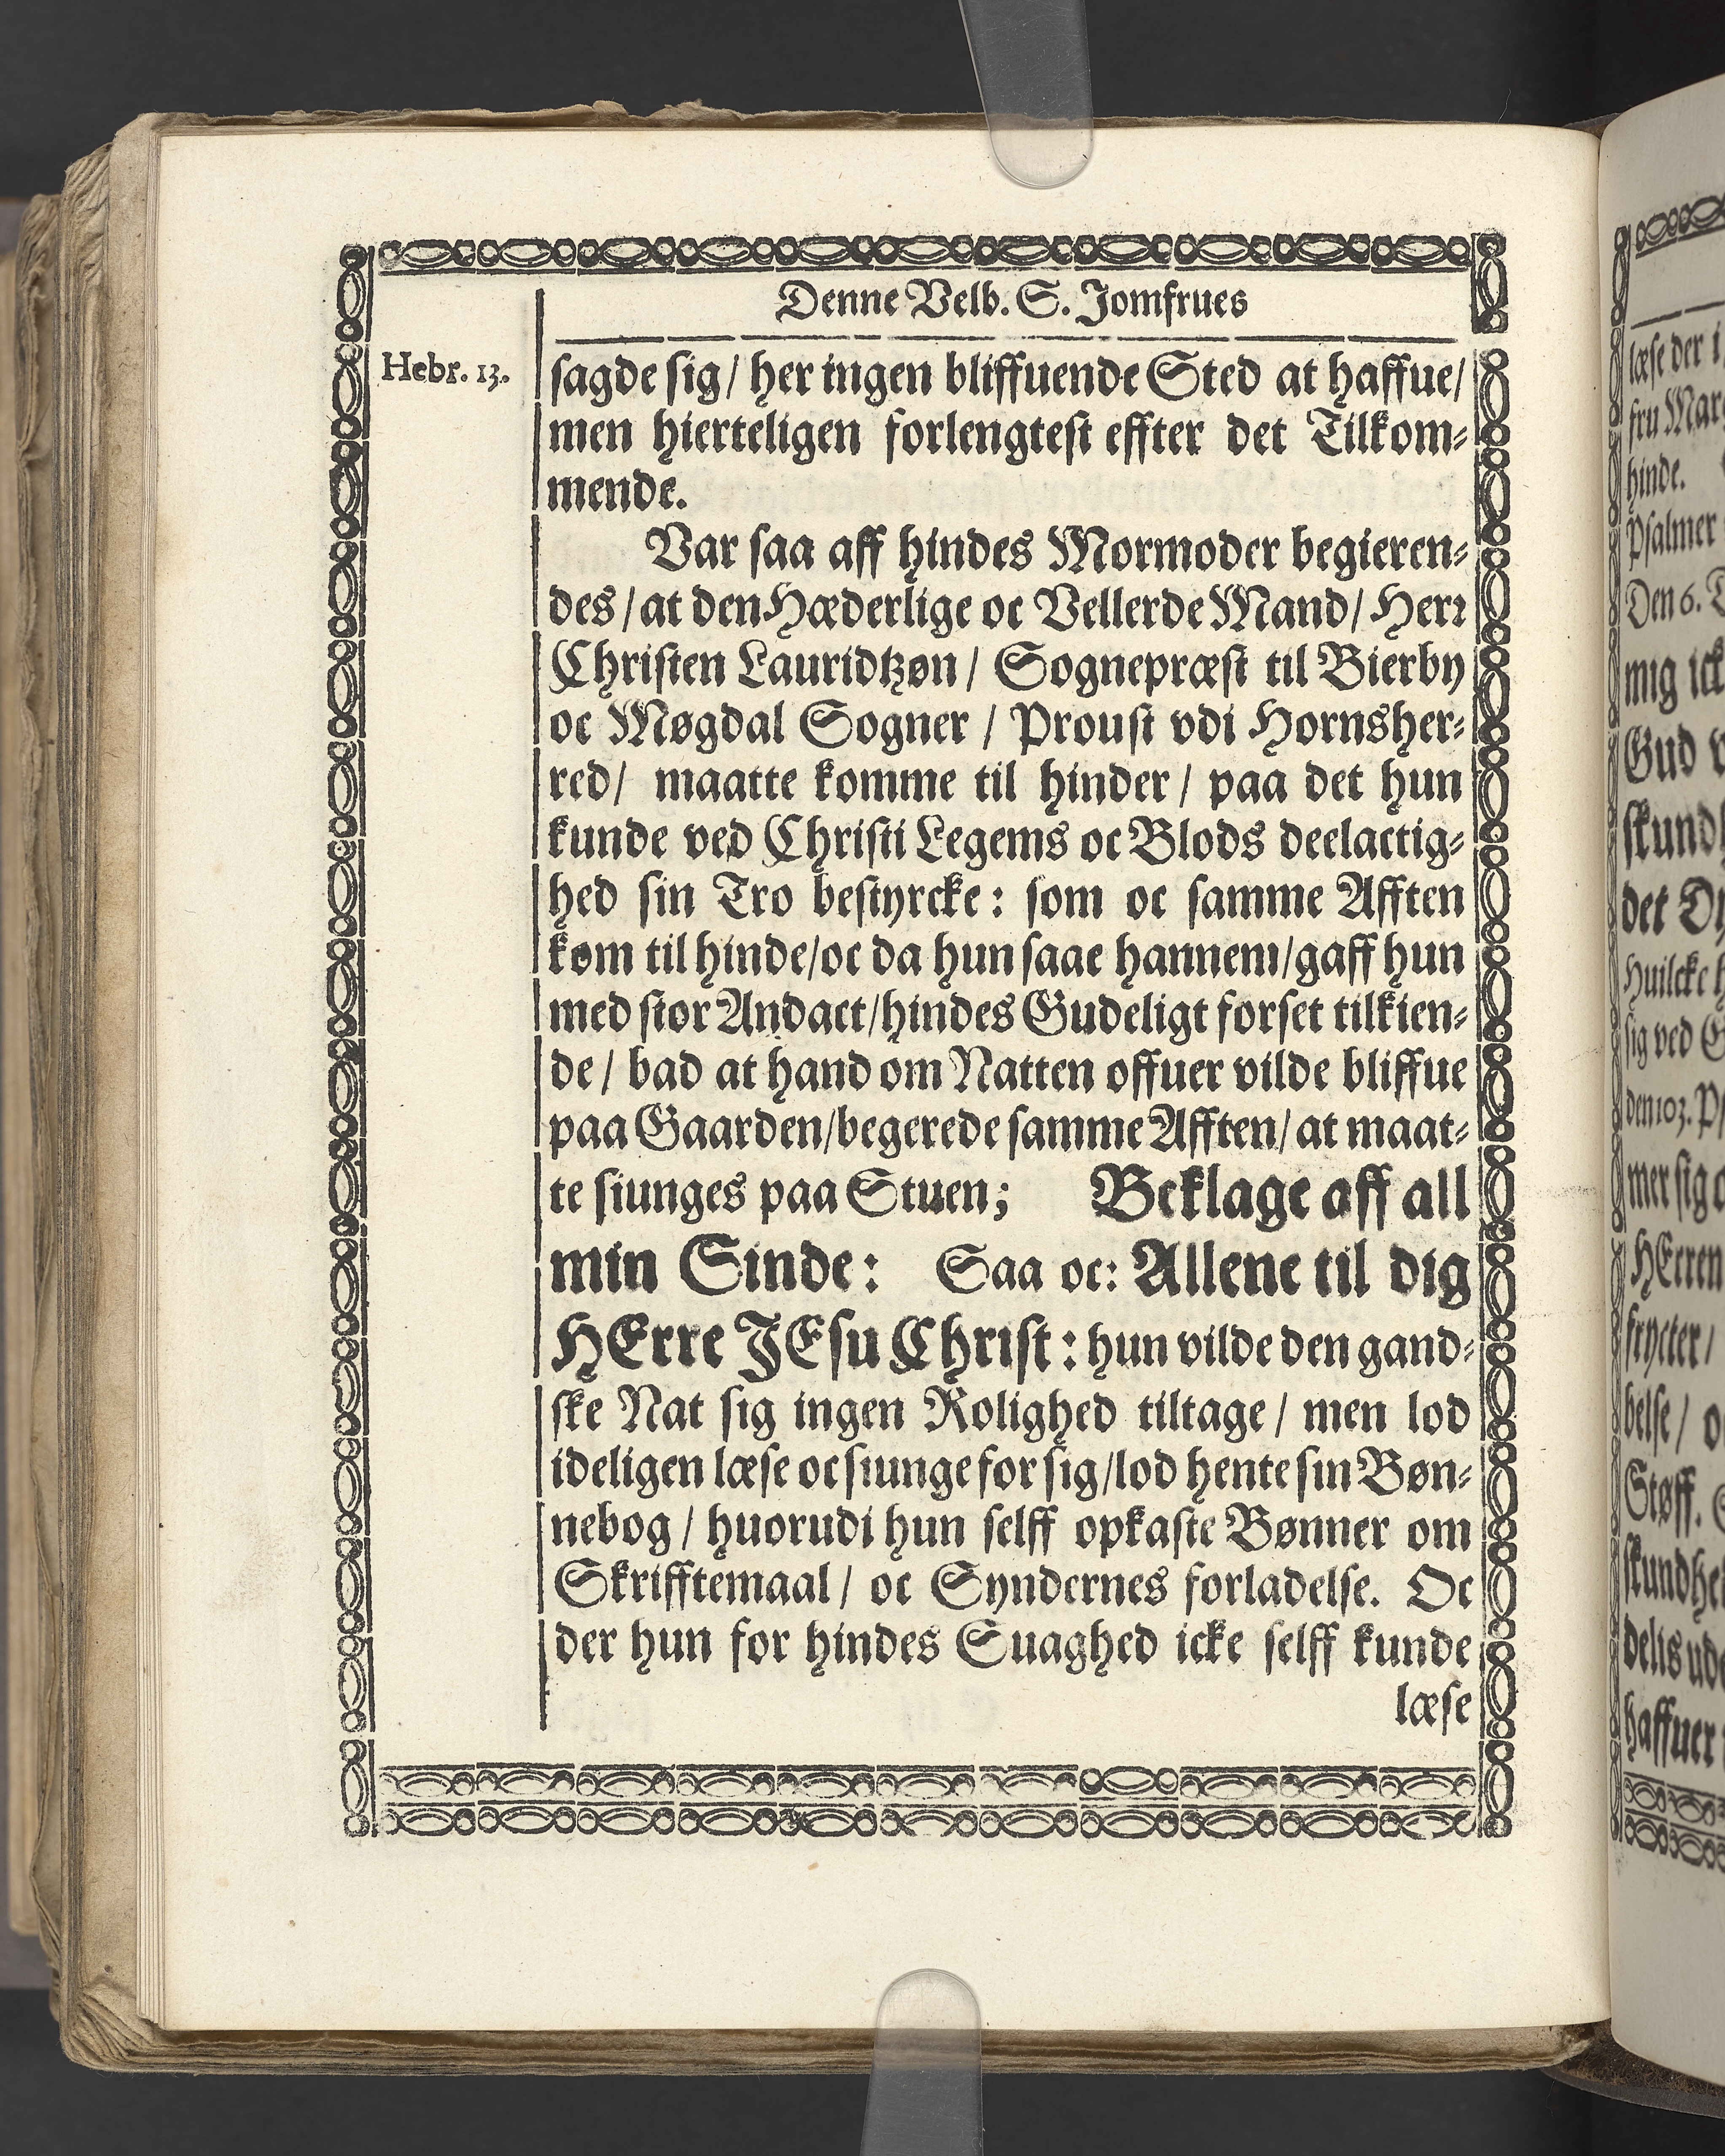 Denne Velb. S. Jomfrues
Hebr. 13.
sagde sig/ her ingen bliffuende Sted at haffue/
men hierteligen forlengtest effter det Tilkom-
mende.
Var saa aff hindes Mormoder begieren-
des/ at den Hæderlige oc Vellerde Mand/ Herr
Christen Lauridtzøn/ Sognepræst til Bierby
oc Møgdal Sogner/ Proust vdi Hornsher-
red/ maatte komme til hinder/ paa det hun
kunde ved Christi Legems oc Blods deelactig-
hed sin Tro bestyrcke: som oc samme Afften
kom til hinde/ oc da hun saae hannem/ gaff hun
med stor Andact/ hindes Gudeligt forset tilkien-
de/ bad at hand om Natten offuer vilde bliffue
paa Gaarden/ begerede samme Afften/ at maat-
te siunges paa Stuen; Beklage aff all
min Sinde: Saa oc: Allene til dig
HErre JEsu Christ: hun vilde den gand-
ske Nat sig ingen Rolighed tiltage/ men lod
ideligen læse oc siunge for sig/ lod hente sin Bøn-
nebog/ huorudi hun selff opkaste Bønner om
Skrifftemaal/ oc Syndernes forladelse. Oc
der hun for hindes Suaghed icke selff kunde
læse
læse der i
fru Mar
hinde.
Psalmer
Den 6.
mig ick
Gud
skund
det
Huilcke
sig ved
den 103.
mer sig
HErren
frycter/
belse/
Støff.
skundhe
delis
haffuer